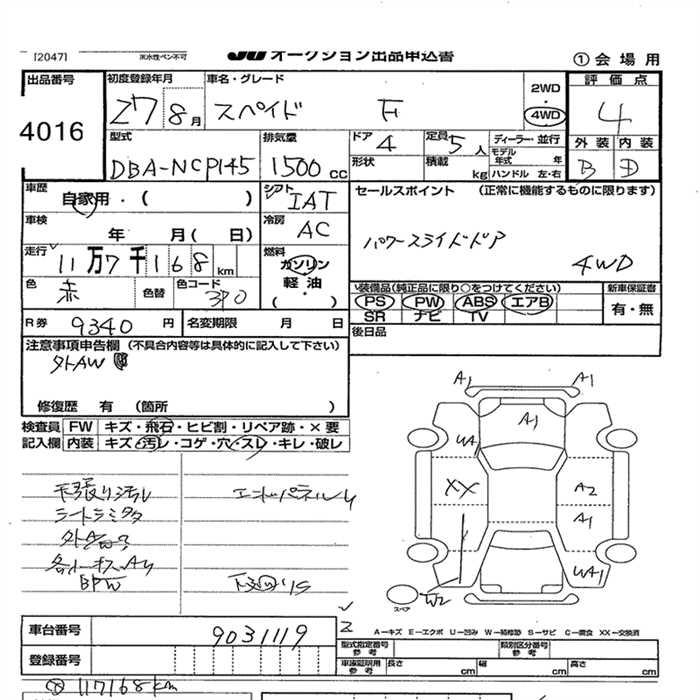 [2047] ※水性ペン不可 JU オークション出品申込書 ①会場用
出品番号 初度登録年月 車名・グレード 2WD 評価点
4016 27 8月 スペイド F 4WD 4
型式 排気量 ドア 定員 ディーラー・並行 外装 内装
DBA-NCP145 1500cc 4 5人 モデル年式 年 B D
形状 積載 kg ハンドル 左・右
車歴 シフト セールスポイント (正常に機能するものに限ります)
自家用・( ) IAT
車検 冷房
年 月( 日) AC パワースライドドア
走行 燃料 4WD
11万7千168km ガソリン
色 色替 色コード 軽油 装備品(純正品に限り○をつけてください) 新車保証書
赤 3P0 (・) PS PW ABS エアB 有・無
SR ナビ TV
R券 9340円 名変期限 月 日 後日品
注意事項申告欄 (不具合内容等は具体的に記入して下さい)
外AW
修復歴 有 (箇所 )
検査員 FW キズ・飛石・ヒビ割・リペア跡・×要
記入欄 内装 キズ・汚レ・コゲ・穴・スレ・キレ・破レ
天張り汚レ
シートシミ
各所キズAU
A1 A1
A1
WA1
XX A2
A1
WA1
W2
スペア
車台番号 9031119
A-キズ E-エクボ U-凹み W-補修跡 S-サビ C-腐食 XX-交換済
型式指定番号 参考 類別区分番号 参考
登録番号 車庫証明用 参考 長さ cm 幅 cm 高さ cm
117168km